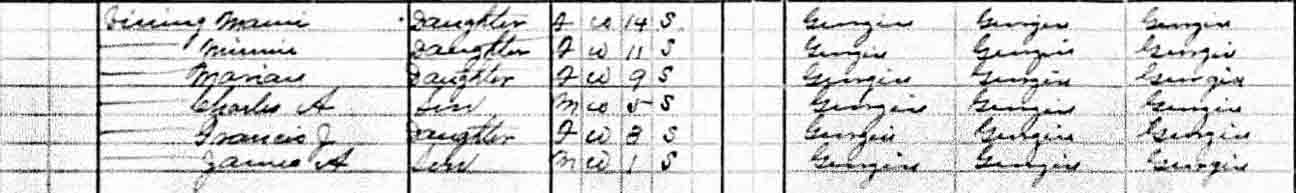 Vining Mamie Daughter F W 14 S Georgia Georgia Georgia
— Minnie Daughter F W 11 S Georgia Georgia Georgia
— Marian Daughter F W 9 S Georgia Georgia Georgia
— Charles A Son M W 5 S Georgia Georgia Georgia
— Francis J Daughter F W 3 S Georgia Georgia Georgia
— James A Son M W 1 S Georgia Georgia Georgia